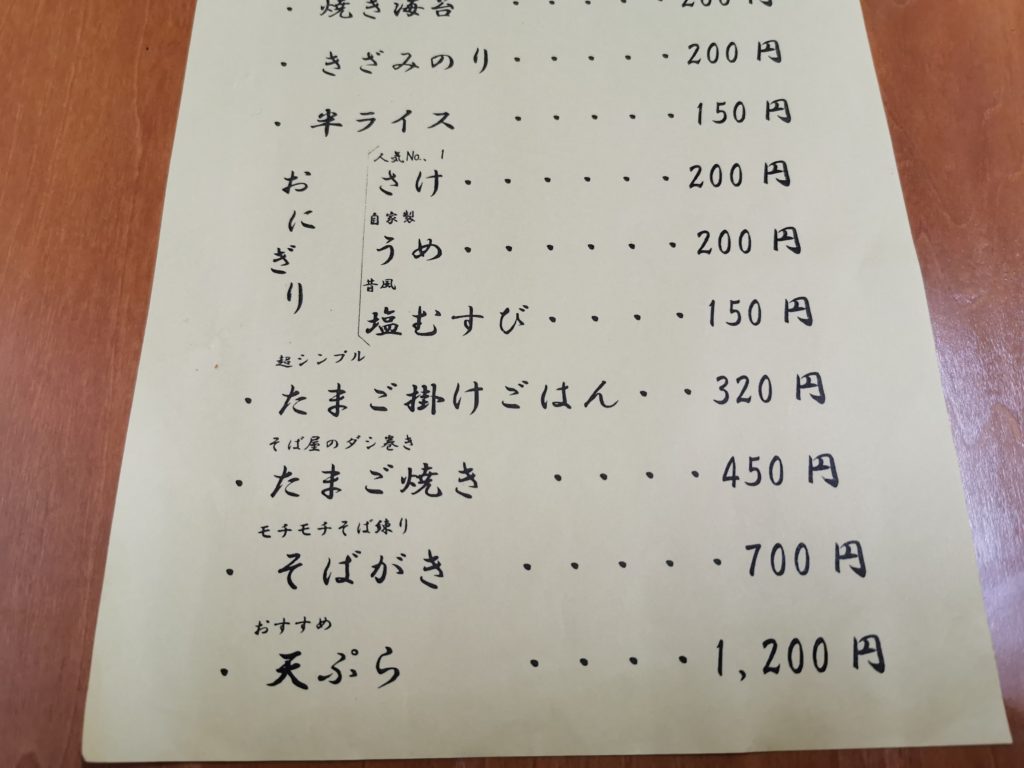 ・焼き海苔 ・・・・・200円
・きざみのり・・・・・200円
・半ライス ・・・・・150円
おにぎり
人気No、1
さけ・・・・・・200円
自家製
うめ・・・・・・200円
昔風
塩むすび・・・・150円
超シンプル
・たまご掛けごはん・・320円
そば屋のダシ巻き
・たまご焼き ・・・・450円
モチモチそば練り
・そばがき ・・・・・700円
おすすめ
・天ぷら ・・・・1,200円